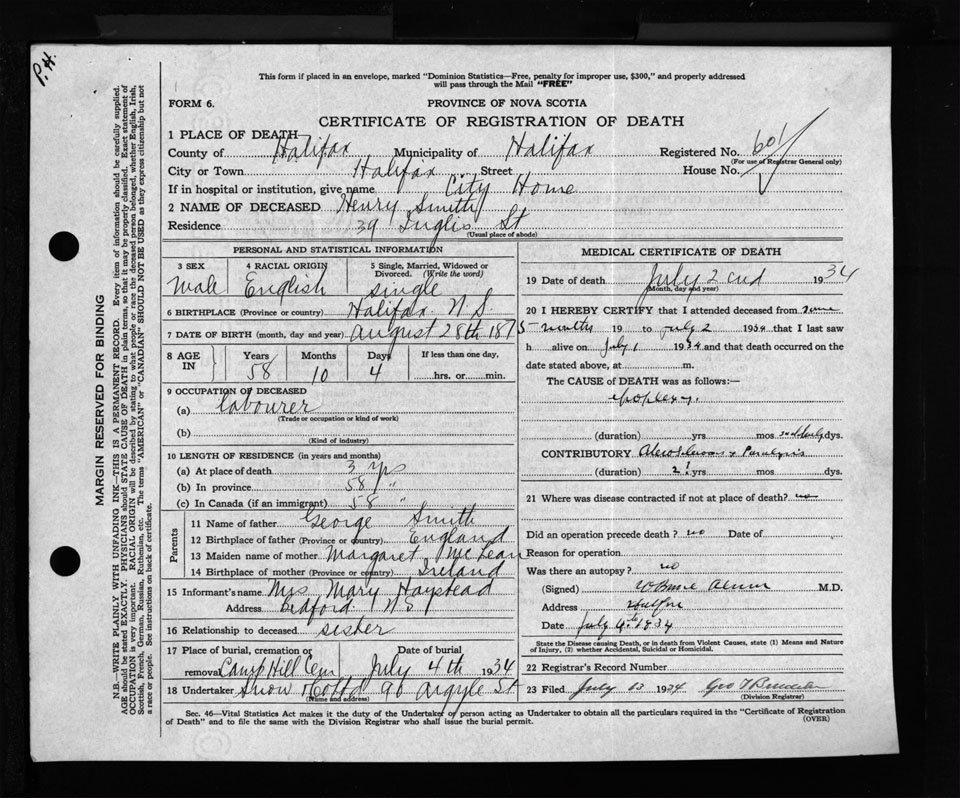 P.H.
This form if placed in an envelope, marked "Dominion Statistics—Free, penalty for improper use, $300," and properly addressed
will pass through the Mail "FREE"
FORM 6.
PROVINCE OF NOVA SCOTIA
CERTIFICATE OF REGISTRATION OF DEATH
1 PLACE OF DEATH
County of Halifax Municipality of Halifax Registered No. 601
(For use of Registrar General only)
City or Town Halifax Street House No.
If in hospital or institution, give name City Home
2 NAME OF DECEASED Henry Smith
Residence 39 Inglis St
(Usual place of abode)
PERSONAL AND STATISTICAL INFORMATION
3 SEX 4 RACIAL ORIGIN 5 Single, Married, Widowed or Divorced. (Write the word)
Male English single
6 BIRTHPLACE (Province or country) Halifax N.S.
7 DATE OF BIRTH (month, day and year) August 28th 1875
8 AGE IN Years Months Days If less than one day,
58 10 4 hrs. or min.
9 OCCUPATION OF DECEASED
(a) labourer
(Trade or occupation or kind of work)
(b)
(Kind of industry)
10 LENGTH OF RESIDENCE (in years and months)
(a) At place of death 3 yrs
(b) In province 58 "
(c) In Canada (if an immigrant) 58 "
Parents
11 Name of father George Smith
12 Birthplace of father (Province or country) England
13 Maiden name of mother Margaret McLean
14 Birthplace of mother (Province or country) Ireland
15 Informant's name Mrs Mary Haystead
Address Bedford N S
16 Relationship to deceased sister
17 Place of burial, cremation or removal Date of burial
Camp Hill Cem July 4th 1934
18 Undertaker Snow & Co Ltd 90 Argyle St
(Name and address)
MEDICAL CERTIFICATE OF DEATH
19 Date of death July 2 1934
(Month, day and year)
20 I HEREBY CERTIFY that I attended deceased from
months 19 to July 2 1934 that I last saw
h alive on July 1 1934 and that death occurred on
date stated above, at m.
The CAUSE of DEATH was as follows:—
Apoplexy.
(duration) yrs mos suddenly dys.
CONTRIBUTORY Paralysis
(duration) 2 yrs mos dys.
21 Where was disease contracted if not at place of death? no
Did an operation precede death? no Date of
Reason for operation
Was there an autopsy? no
(Signed) M.D.
Address Halifax
Date July 4th 1934
State the Disease causing Death, or in death from Violent Causes, state (1) Means and Nature
of Injury, (2) whether Accidental, Suicidal or Homicidal.
22 Registrar's Record Number
23 Filed July 1934 Geo
(Division Registrar)
Sec. 46—Vital Statistics Act makes it the duty of the Undertaker or person acting as Undertaker to obtain all the particulars required in the "Certificate of Registration
of Death" and to file the same with the Division Registrar who shall issue the burial permit.
(OVER)
MARGIN RESERVED FOR BINDING
N.B.—WRITE PLAINLY WITH UNFADING INK—THIS IS A PERMANENT RECORD. Every item of information should be carefully supplied.
AGE should be stated EXACTLY. PHYSICIANS should STATE CAUSE OF DEATH in plain terms, so that it may be properly classified. Exact statement of
OCCUPATION is very important. RACIAL ORIGIN will be described by stating to what people or race the deceased person belonged, whether English, Irish,
Scottish, French, German, Russian, Ruthenian, etc. The terms "AMERICAN" or "CANADIAN" SHOULD NOT BE USED as they express citizenship but not
a race or people. See instructions on back of certificate.